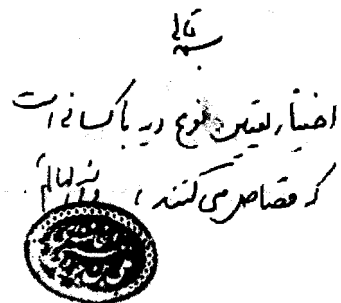 بسمه تعالی
اختیار تعیین نوع دیه با کسانی است
که قصاص می‌کنند،